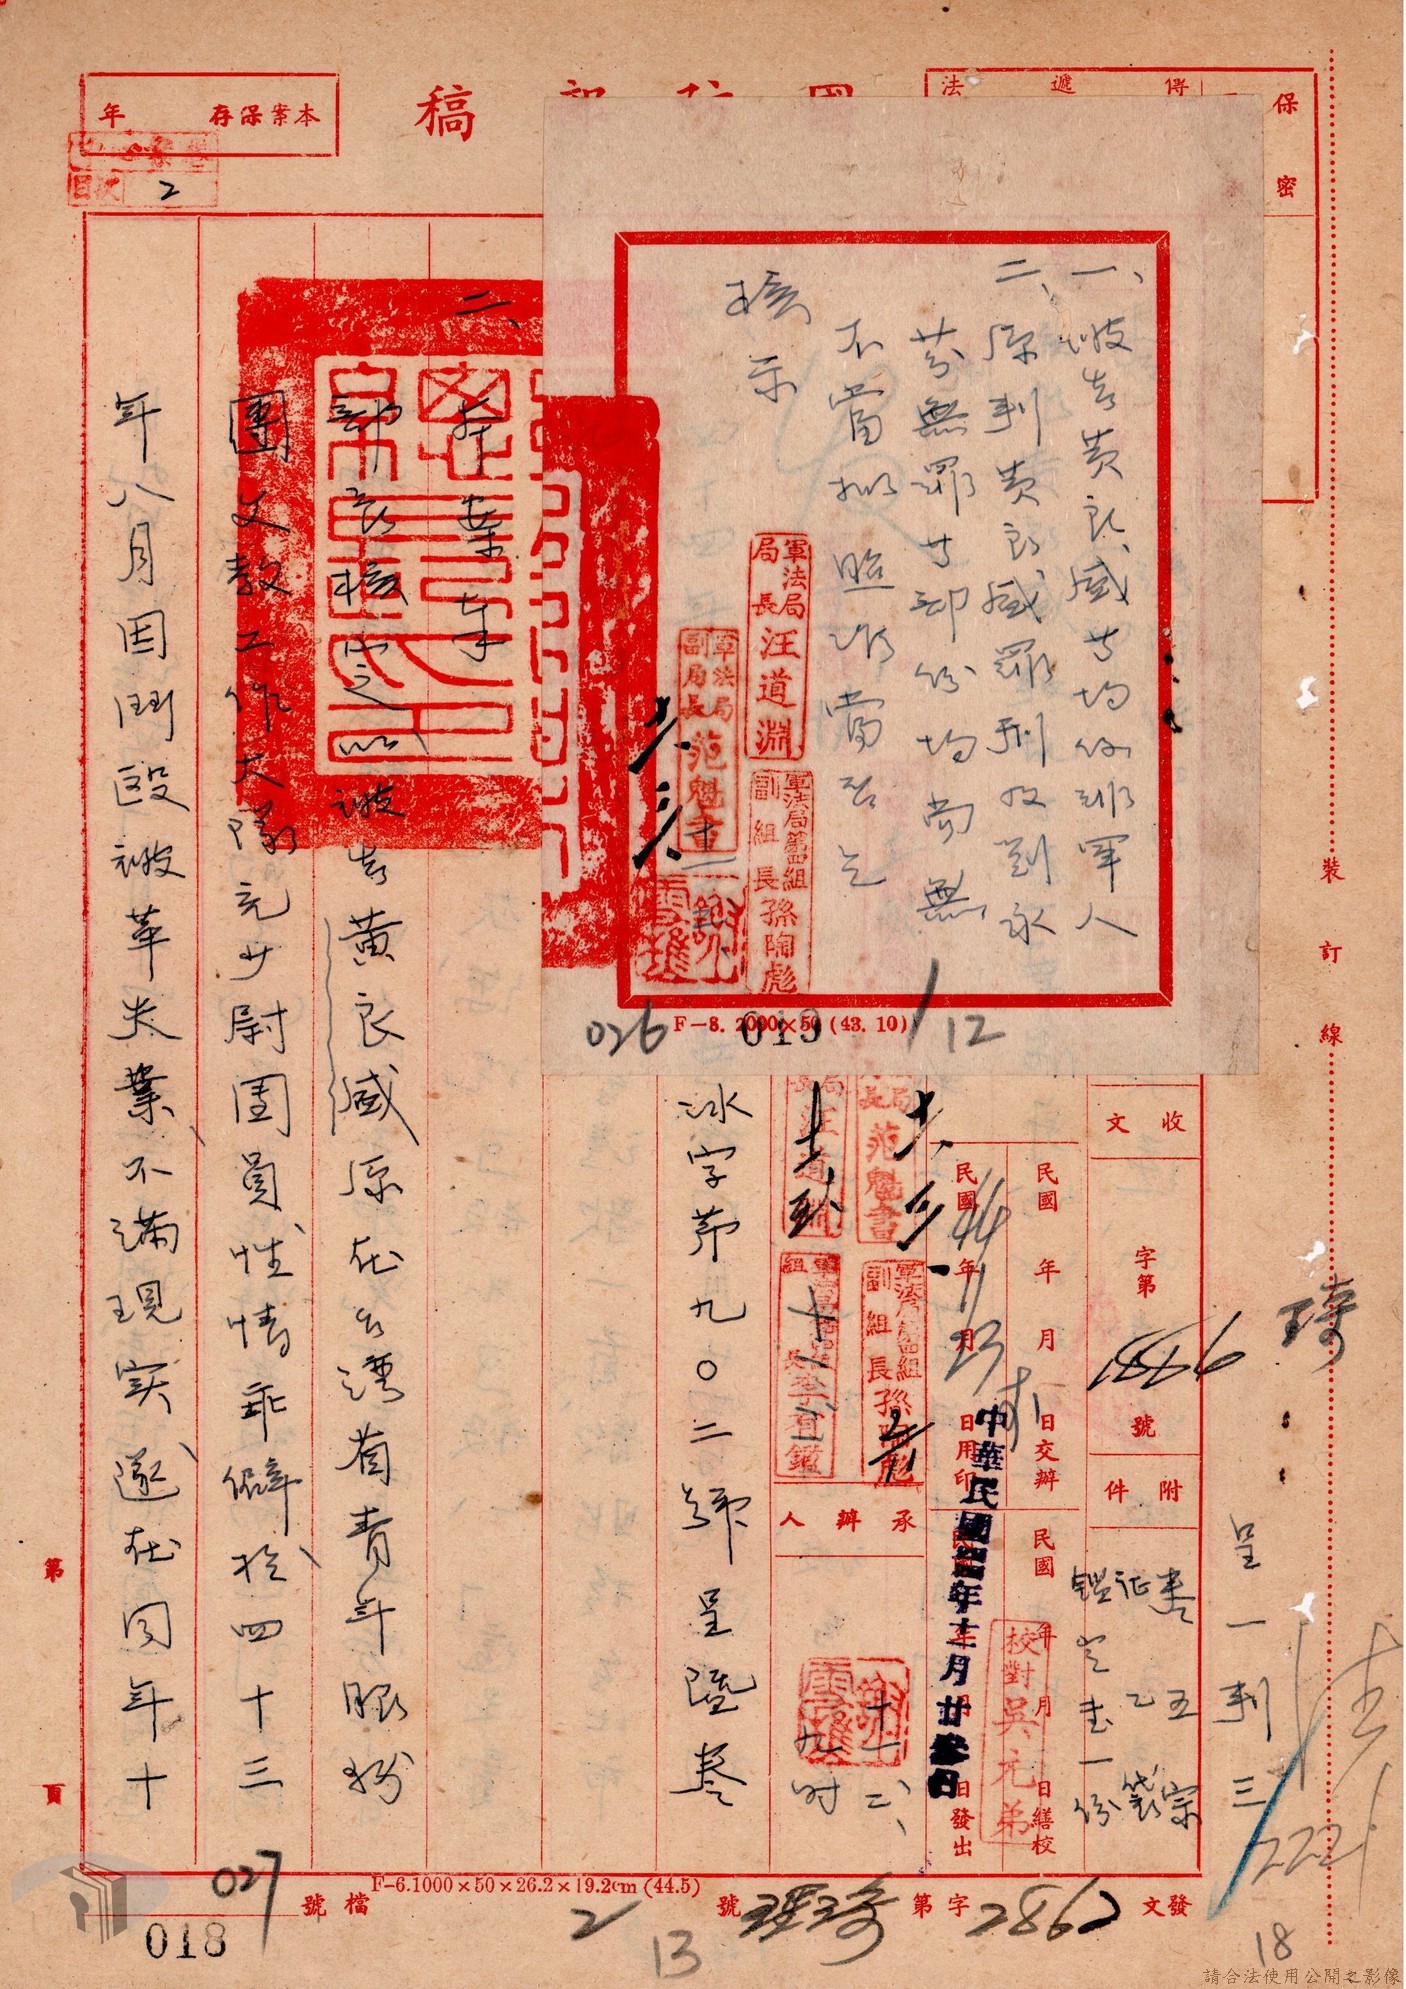 保密
法
遞
傳
稿
本案保存　年
目次
2
一、被告黃良盛等均係非軍人
二、原判黃良盛罪刑及劉永
芬無罪等部份均尚無
不當擬照准當否乞
核示
軍法局局長汪道淵
軍法局副局長范魁書
軍法局第四組副組長孫陶彪
F-8. 2000×50 (43. 10)
026
019
1/12
收文
字第
1886
號
附件
卷五宗
証乙袋
鑑定書一份
呈一判三
琦
民國　年　月　日交辦
民國44年11月23日用印
民國　年　月　日繕校
年　月　日發出
中華民國四四年十一月廿叁日
校對吳元弟
承辦人
十一、二、
九時
汪道淵
范魁書
軍法局第四組副組長孫陶彪
冰字第九〇二號呈暨卷
二、
本案奉
部長核定以被告黃良盛原在台灣省青年服務
團文教工作大隊充少尉團員性情乖僻於四十三
年八月因鬥毆被革失業不滿現實遂在同年十
裝
訂
線
第
頁
027
018
檔號
F-6.1000×50×26.2×19.2cm (44.5)
發文
字第
2862
號
2/13
1222
18
請合法使用公開之影像